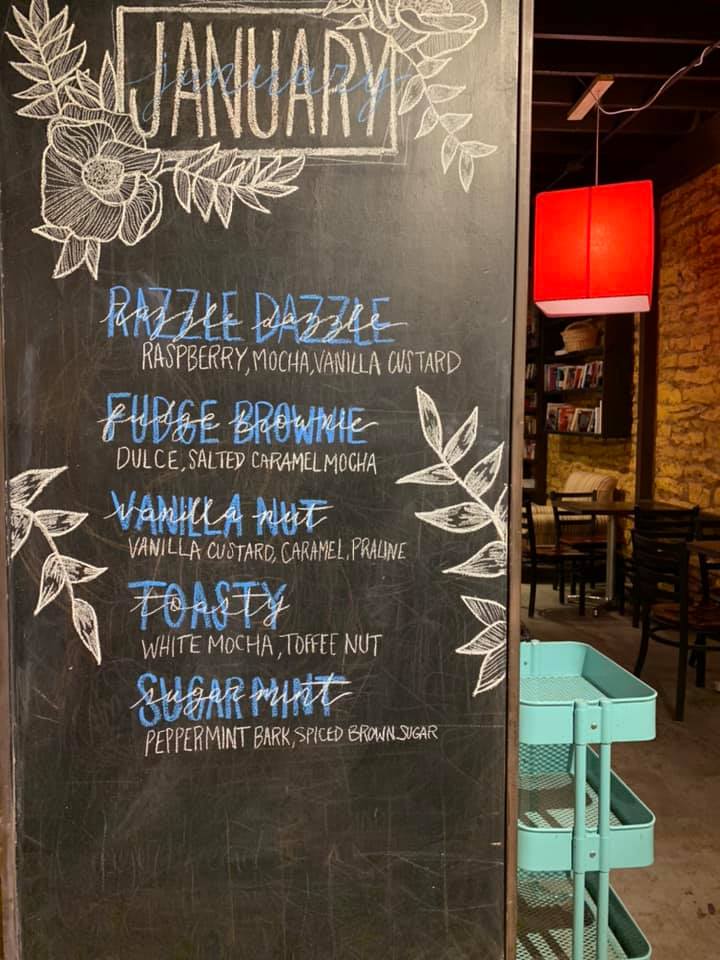 JANUARY
january
RAZZLE DAZZLE
razzle dazzle
RASPBERRY, MOCHA, VANILLA CUSTARD
FUDGE BROWNIE
fudge brownie
DULCE, SALTED CARAMEL MOCHA
VANILLA NUT
vanilla nut
VANILLA CUSTARD, CARAMEL, PRALINE
TOASTY
toasty
WHITE MOCHA, TOFFEE NUT
SUGAR MINT
sugar mint
PEPPERMINT BARK, SPICED BROWN SUGAR